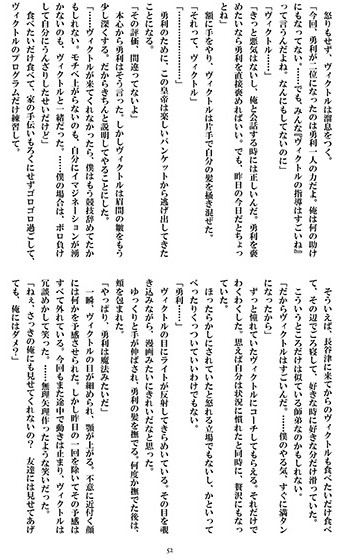 怒りもせず、ヴィクトルは溜息をつく。
「今回、勇利が二位になったのは勇利一人の力だよ。俺は何の助けにもなってない。……でも、みんな『ヴィクトルの指導はすごいね』って言うんだよね。なんにもしてないのに」
「ヴィクトル……」
「きっと悪気はないし、俺と会話する時には正しいんだ。勇利を褒めたいなら勇利を直接褒めればいい。でも、昨日の今日だとちょっとね」
額に手をやり、ヴィクトルは片手で自分の髪を掻き混ぜた。
「それって、ヴィクトル」
「…………」
勇利のために、この皇帝は楽しいバンケットから逃げ出してきたことになる。
「その評価、間違ってないよ」
本心から勇利はそう言った。しかしヴィクトルは眉間の皺をもう少し深くする。だからきちんと説明してやることにした。
「……ヴィクトルが来てくれなかったら、僕はもう競技辞めてたかもしれない。モチベ上がらないのも、自分にイマジネーションが湧かないのも、ヴィクトルと一緒だった。……僕の場合は、ボロ負けして自分にうんざりしたせいだけど」
食べたいだけ食べて、家の手伝いもろくにせずゴロゴロ過ごして、ヴィクトルのプログラムだけ練習して。
そういえば、長谷津に来てからのヴィクトルも食べたいだけ食べて、その辺でごろ寝して、好きな時に好きな分だけ滑っていた。こういうところだけは似ている師弟なのかもしれない。
「だからヴィクトルはすごいんだ。……僕のやる気、すぐに満タンになったから」
ずっと憧れていたヴィクトルにコーチしてもらえる。それだけでわくわくした。思えば自分は状況に慣れたと同時に、贅沢にもなっていた。
ほったらかしにされていたと怒れる立場でもないし、かといってべったりくっついていいわけでもない。
「勇利……」
ヴィクトルの目にライトが反射してきらめいている。その目を覗き込みながら、漫画みたいにきれいだなと思った。
ゆっくりと手が伸ばされ、勇利の髪を撫でる。何度か撫でた後は、頬を包まれた。
「やっぱり、勇利は魔法みたいだ」
一瞬、ヴィクトルの目が細められ、顎が上がる。不意に近付く顔には何かを予感させられた。しかし昨日の一回を除いてその予感はすべて外れている。今回もまた途中で動きは止まり、ヴィクトルは冗談めかして笑った。……無理矢理作ったような笑いだった。
「ねぇ、さっきの俺にも見せてくれないの？　友達には見せてあげても、俺にはダメ？」
52